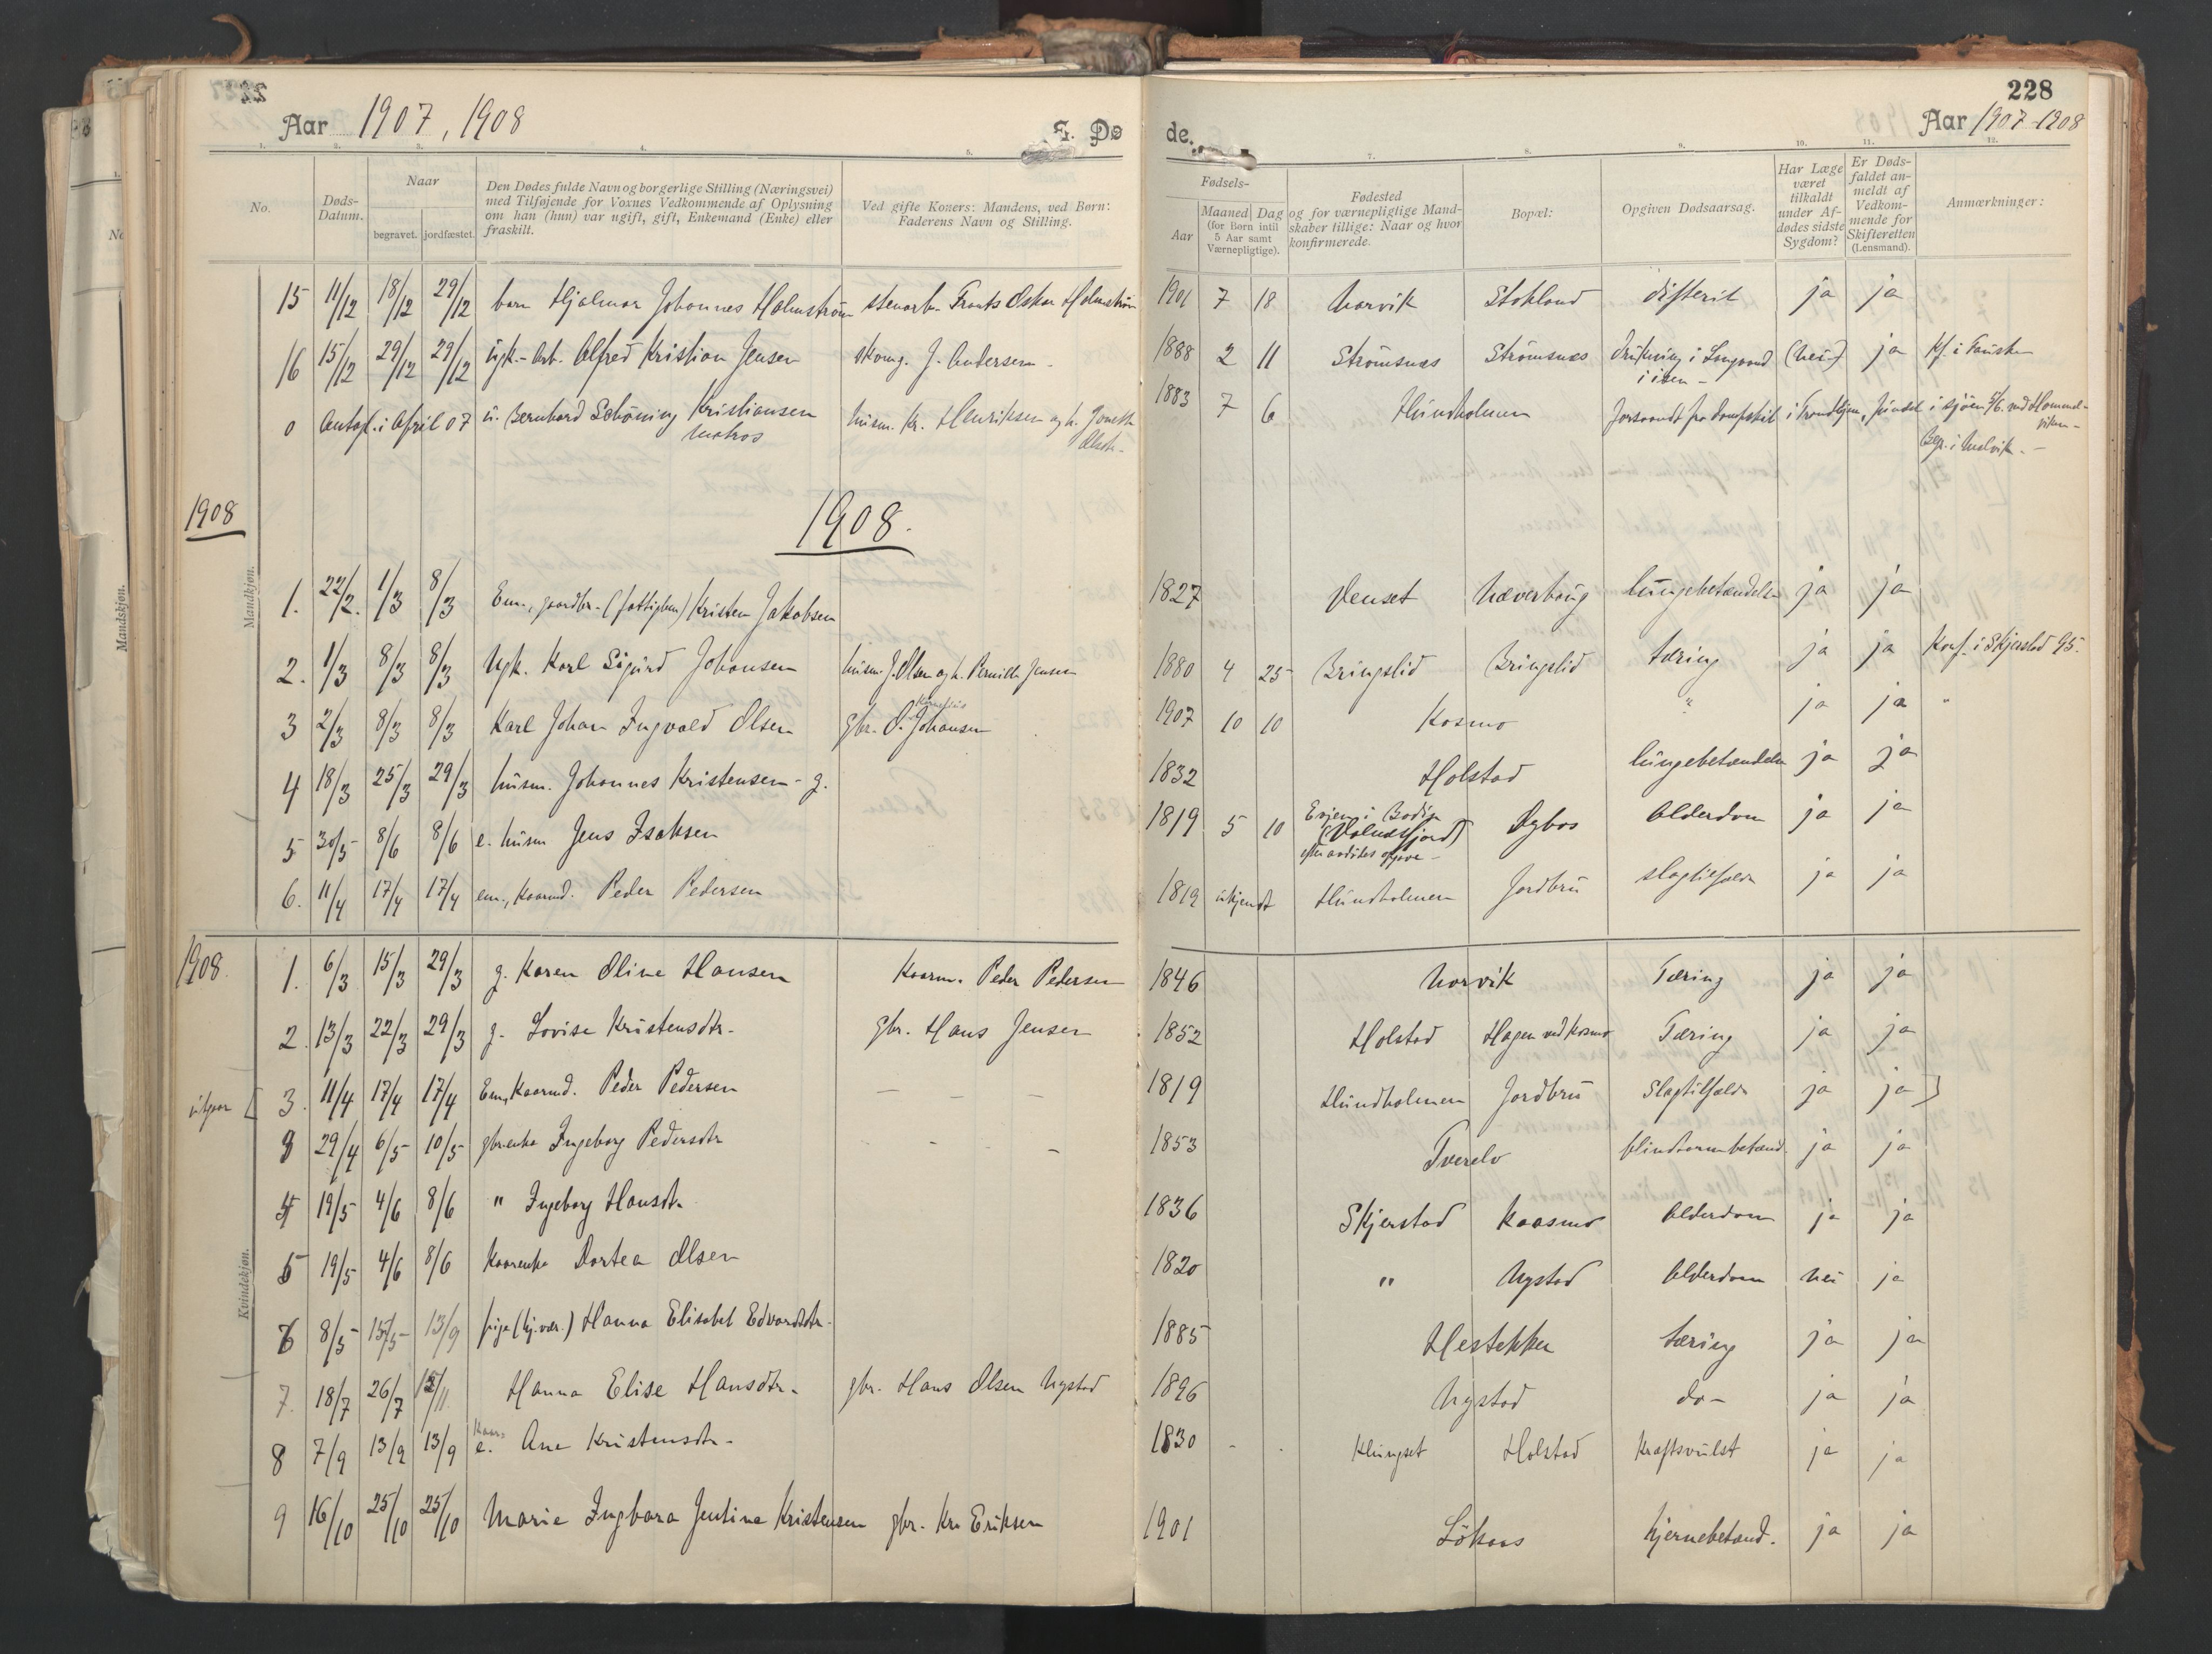 228
Aar 1907, 1908
E. Døde.
Aar 1907-1908
1. 2. 3. 4. 5. 7. 8. 9. 10. 11. 12.
No.
Døds-Datum.
Naar
begravet. jordfæstet.
Den Dødes fulde Navn og borgerlige Stilling (Næringsvei)
med Tilføjende for Voxnes Vedkommende af Oplysning
om han (hun) var ugift, gift, Enkemand (Enke) eller
fraskilt.
Ved gifte Koners: Mandens, ved Børn:
Faderens Navn og Stilling.
Fødsels-
Aar
Maaned Dag
(for Børn intil
5 Aar samt
Værnepligtige).
Fødested
og for værnepligtige Mand-
skaber tillige: Naar og hvor
konfirmerede.
Bopæl:
Opgiven Dødsaarsag.
Har Læge
været
tilkaldt
under Af-
dødes sidste
Sygdom?
Er Døds-
faldet an-
meldt af
Vedkom-
mende for
Skifteretten
(Lensmand).
Anmærkninger:
15 11/12 18/12 29/12 barn Hjalmar Johannes Holmstrøm stenarb. Frants Oskar Holmstrøm 1901 7 18 Narvik Stokland difterit ja ja
16 15/12 29/12 29/12 ugk.-arb. Alfred Kristian Jensen skomg. J. Andersen - 1888 2 11 Strömsnæs Strömsnæs drukning i Langvand (nei) ja Kf. i Fauske
i isen -
0 Antagl. i April 07 u. Bernhard Schöning Kristiansen husm. Kr. Henriksen og h. 1883 7 6 Hundholmen forsvandt fra dampskib i Trondhjem, fundet i sjöen 5/6. ved Hommel-
matros Olsdtr. viken-
Beg. i Malvik. -
1908
1908.
Mandkjøn.
1. 22/2. 1/3 8/3 Em., gaardbr. (fattiglem) Kristen Jakobsen 1827 Venset Næverhaug lungebetændelse ja ja
2. 1/3 8/3 8/3 Ugk. Karl Sigurd Johansen husm. J. Olsen og h. Pernille Jensen 1880 4 25 Bringslid Bringslid tæring ja ja Konf. i Skjerstad 95.
3 2/3 8/3 8/3 Karl Johan Ingvald Olsen gbr. O. Kornelius Johansen 1907 10 10 Kosmo " ja ja "
4 18/3 25/3 29/3 husm. Johannes Kristensen - g. 1832 Holstad lungebetændelse ja ja
5 30/5 8/6 8/6 e. husm Jens Isaksen 1819 5 10 Evjen i Bodin Dybos Alderdom ja ja
(Valnesfjord)
efter avdödes opgave -
6. 11/4 17/4 17/4 em., kaarmd. Peder Pedersen 1819 ukjendt Hundholmen Jordbru slagtilfælde ja ja
1908.
Kvindekjøn.
1. 6/3 15/3 29/3 g. Karen Oline Hansen Kaarm. Peder Pedersen 1846 Norvik Tæring ja ja
2. 13/3 22/3 29/3 g. Lovise Kristensdtr. gbr. Hans Jensen 1852 Holstad Hagen ved Kosmo Tæring ja ja
utgaar [ 3. 11/4 17/4 17/4 Em, Kaarmd. Peder Pedersen - - - 1819 Hundholmen Jordbru Slagtilfælde ja ja ]
3 29/4 6/5 10/5 gbrenke Ingeborg Pedersdtr - - 1853 Tverelv blindtarmbetænd. ja ja
4 19/5 4/6 8/6 " Ingeborg Hansdtr. 1836 Skjerstad Kaasmo Alderdom ja ja
5 19/5 4/6 8/6 Kaarenke Dortea Olsen 1820 " Nystad Alderdom nei ja
6 8/5 15/5 13/9 pige (hj.vær.) Hanna Elisabet Edvardsdtr. 1885 Hestekker tæring ja ja
7. 18/7 26/7 Hanna Elise Hansdtr. gbr. Hans Olsen Nystad 1896 Nystad do - ja ja
8 7/9 13/9 13/9 Kaar e. Ane Kristensdtr. 1830 - . Klungset Holstad Kræftsvulst ja ja
9 16/10 25/10 25/10 Marie Ingbara Jentine Kristensen gbr. Kr. Eriksen 1901 Lökaas hjernebetænd. ja ja
Mandskjøn.